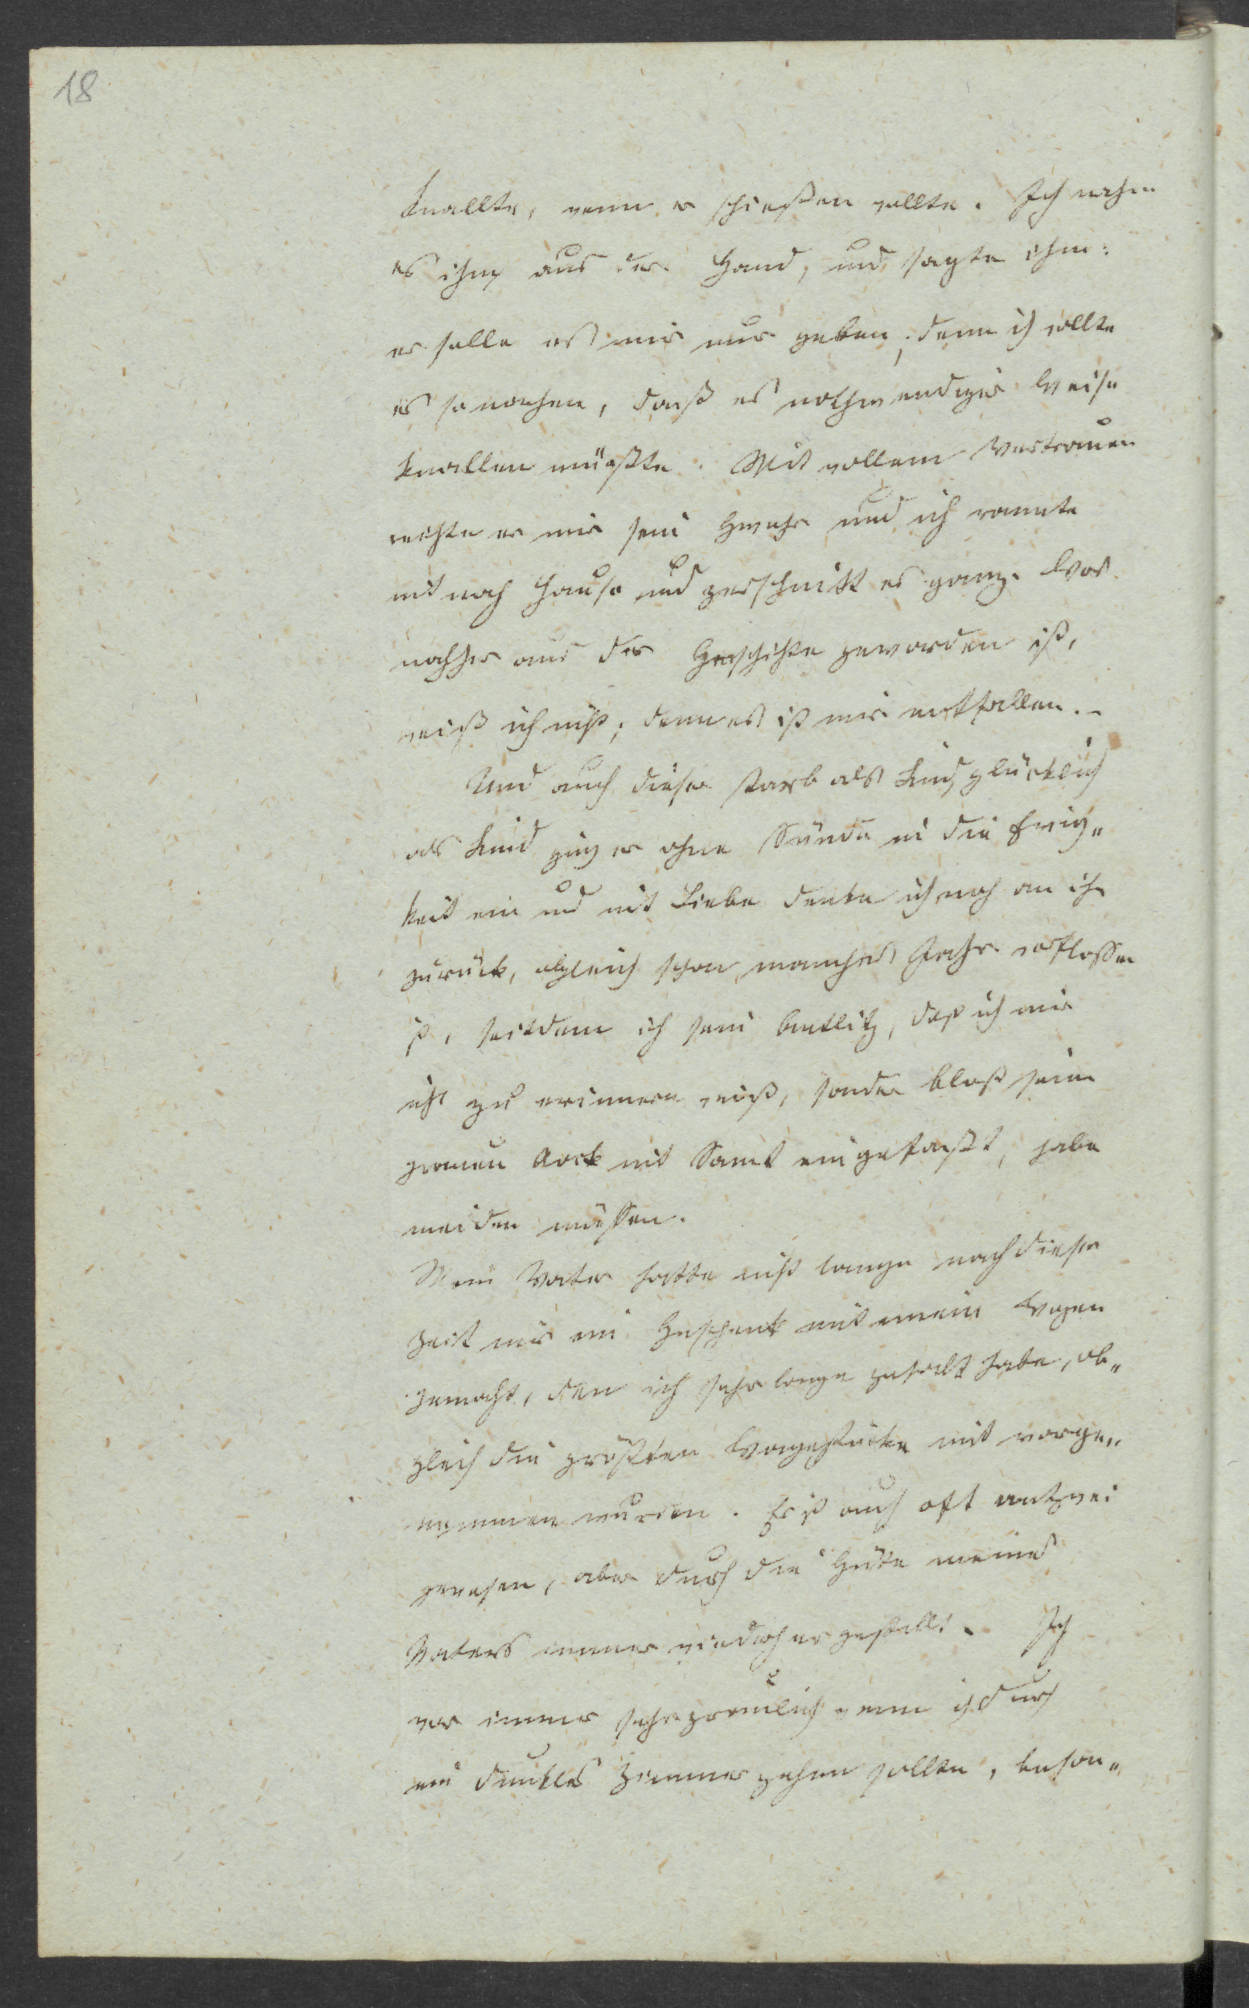 18
knallte, wenn er schießen wollte. Ich nahm
es ihm aus der Hand, und sagte ihm:
er solle es mir nur geben; denn ich wollte
es so machen, daß es nothwendiger Weise
knallen müßte. Mit vollem Vertrauen
reichte er mir sein Gwehr und ich rannte
mit nach Hause und zerschnitt es ganz. Was
nachher aus der Geschichte geworden ist,
weiß ich nicht; denn es ist mir entfallen. –
Und auch dieser starb als Kind, glücklich
als Kind ging er ohne Sünde in die Ewig„
keit ein und mit Liebe denke ich noch an ihn
zurück, obgleich schon manches Jahr verflossen
ist, seitdem ich sein Antlitz, daß ich mir
nicht zu erinnern weiß, sondern bloß seinen
grauen Rock mit Samt eingefaßt, habe
meiden müssen.
Mein Vater hatte nicht lange nach dieser
Zeit mir ein Geschenk mit einem Wagen
gemacht, den ich sehr lange gehabt habe, ob„
gleich die größten Wagestücke mit vorge„
nommen wurden. Er ist auch oft entzwei
gewesen, aber durch die Güte meines
Vaters immer wiederhergestellt. Ich
war immer sehr graulich wenn ich durch
ein dunkles Zimmer gehen sollte, beson„